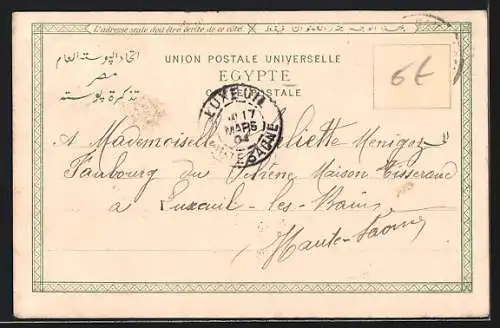 L'adresse seule doit être écrite de ce côté
UNION POSTALE UNIVERSELLE
EGYPTE
CARTE POSTALE
اتحاد البوستة العام
مصر
تذكرة بوستة
6€
LUXEUIL
17
MARS
04
HTE SAONE
A Mademoiselle Juliette
Faubourg du Chêne Maison Tisserand
à Luxeuil-les-Bains
Haute-Saône